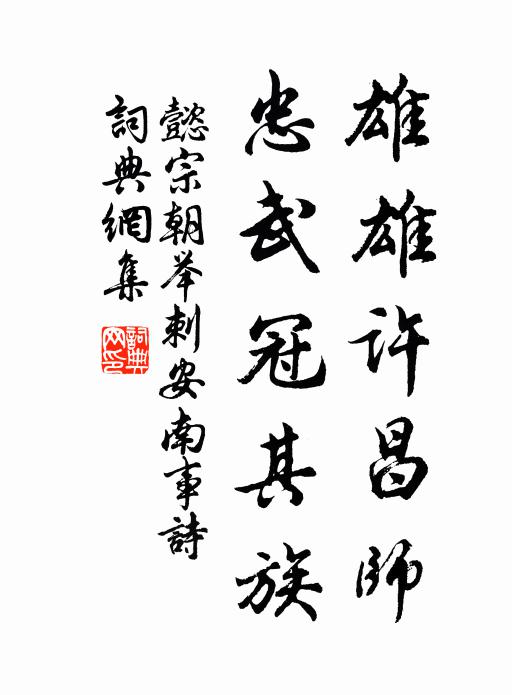 雄雄許昌師
忠武冠其族
懿宗朝举刺安南事詩
詞典網集
詞典网印